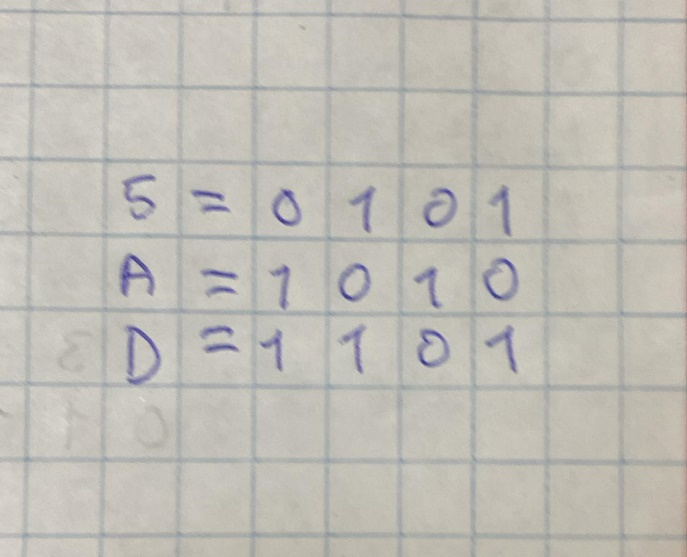 5 = 0 1 0 1
A = 1 0 1 0
D = 1 1 0 1